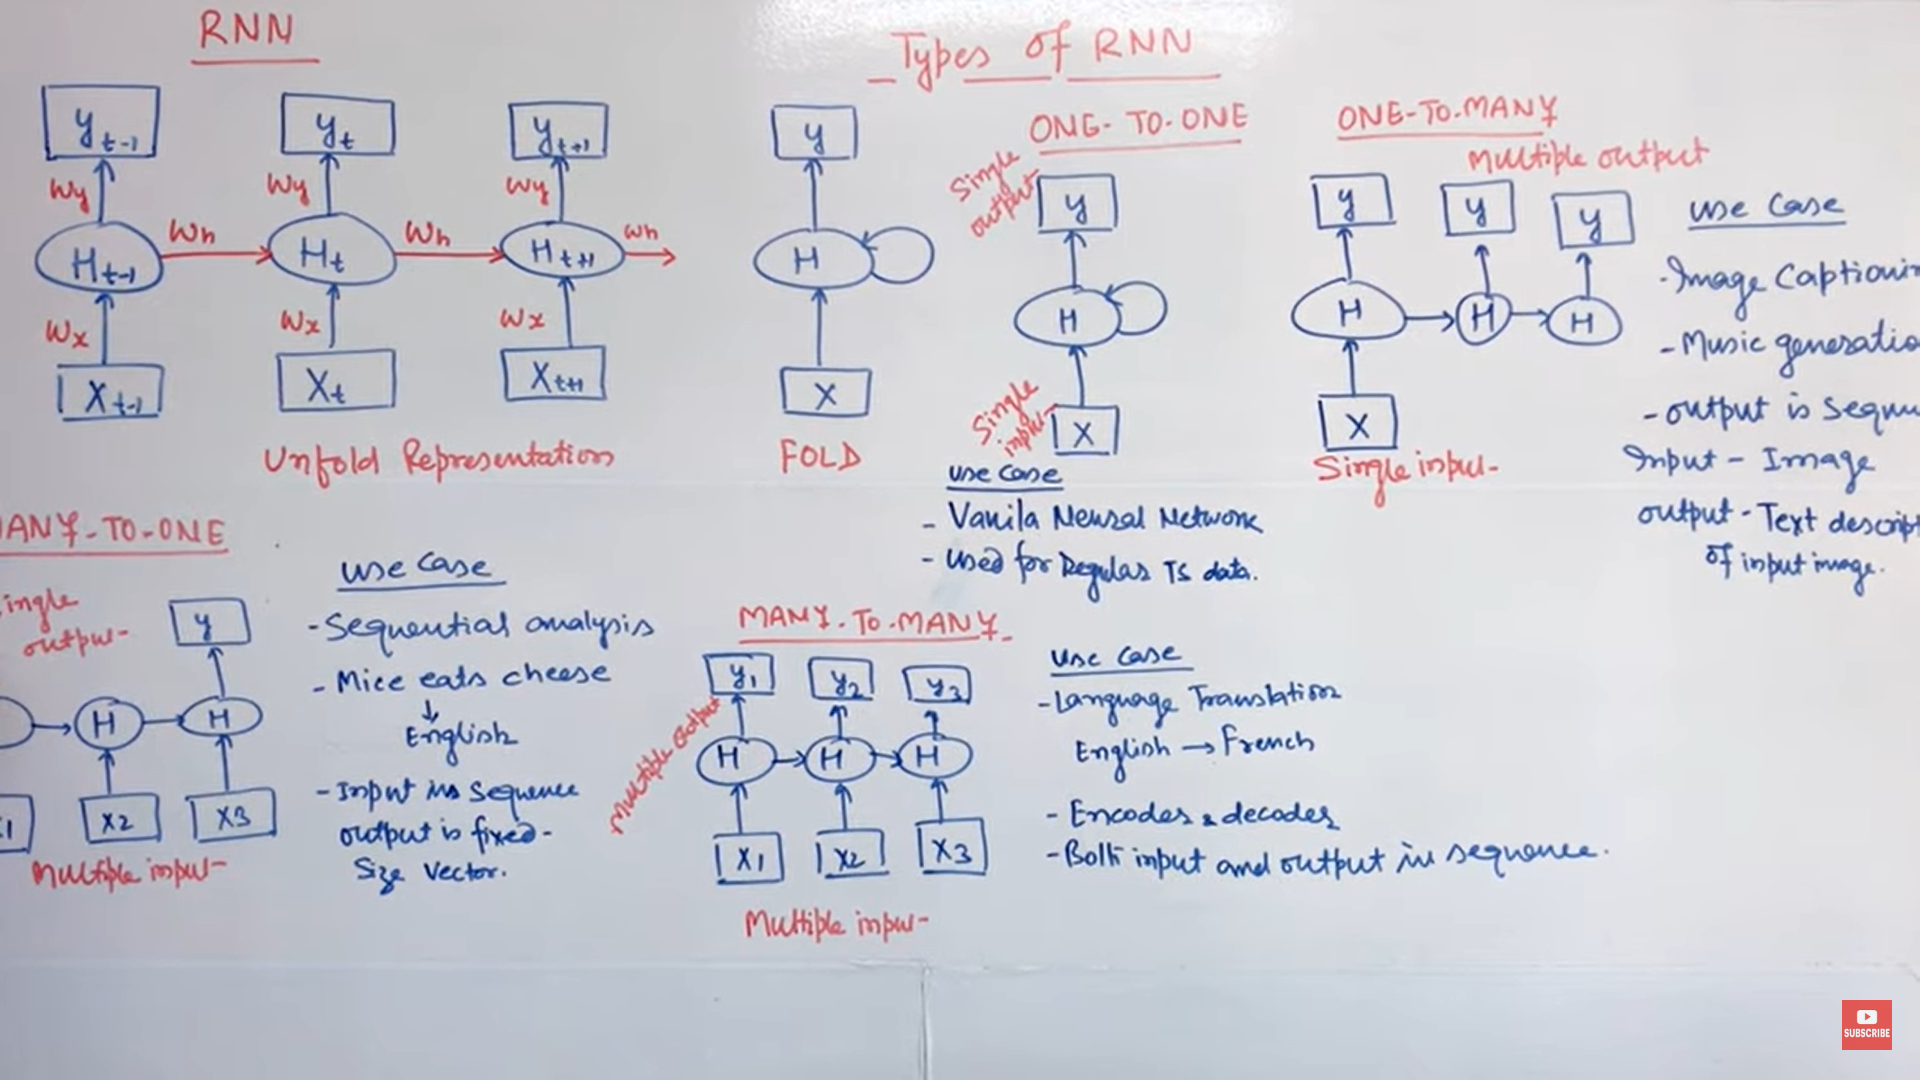 RNN
Types of RNN
yt-1
yt
yt+1
Wy
Wy
Wy
Ht-1
Wh
Ht
Wh
Ht+1
Wh
Wx
Wx
Wx
Xt-1
Xt
Xt+1
Unfold Representation
y
H
X
FOLD
ONE-TO-ONE
Single
output
y
H
Single
X
use case
- Vanila Neural Network
- Used for Regular TS data.
ONE-TO-MANY
Multiple output
y
y
y
H
H
H
X
Single input
use case
- Image Captionin
- Music generatio
- output is Sequ
Input - Image
output - Text descript
of input image.
MANY-TO-ONE
ingle
output
y
H
H
X2
X3
Multiple input
use case
- Sequential analysis
- Mice eats cheese
↓
English
- Input in Sequence
output is fixed-
Size Vector.
MANY-TO-MANY
Multiple output
y1
y2
y3
H
H
H
X1
X2
X3
Multiple input
use case
- Language Translation
English → French
- Encodes & decodes
- Both input and output in sequence.
SUBSCRIBE